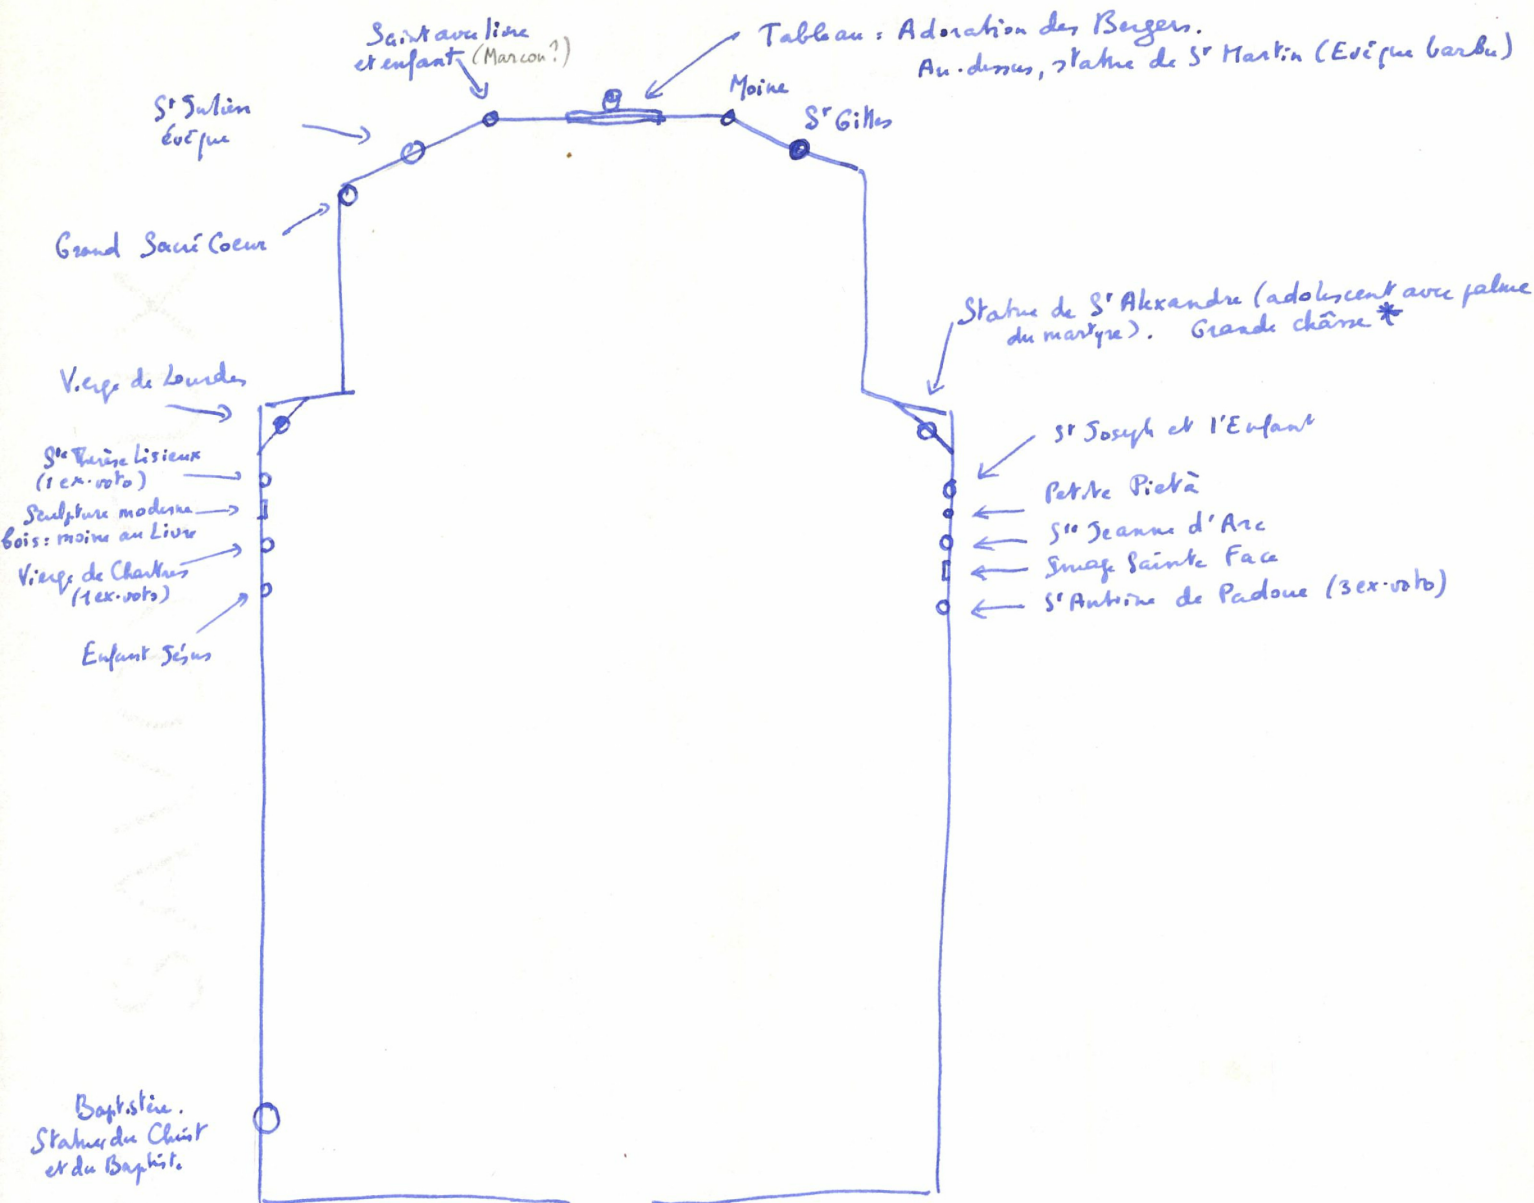 Saint avec livre
et enfant (Marcou?)
Tableau : Adoration des Bergers.
Au-dessus, statue de St Martin (Evêque barbu)
Moine
St Gilles
St Julien
évêque
Grand Sacré Coeur
Statue de St Alexandre (adolescent avec palme
du martyre). Grande châsse *
Vierge de Lourdes
Ste Thérèse Lisieux
(1 ex-voto)
Sculpture moderne
bois : moine au Livre
Vierge de Chartres
(1 ex-voto)
Enfant Jésus
St Joseph et l'Enfant
Petite Pietà
Ste Jeanne d'Arc
Image Sainte Face
St Antoine de Padoue (3 ex-voto)
Baptistère.
Statues du Christ
et du Baptiste